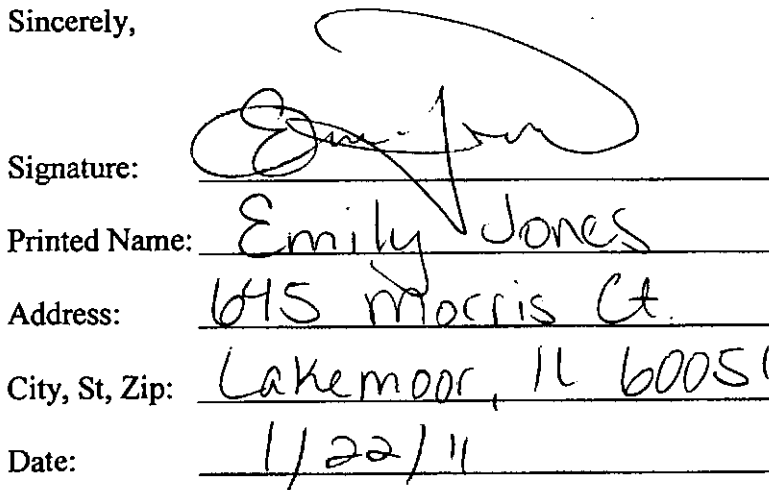 Sincerely,
Signature:
Printed Name: Emily Jones
Address: 645 Morris Ct.
City, St, Zip: Lakemoor, IL
Date: 1/22/11